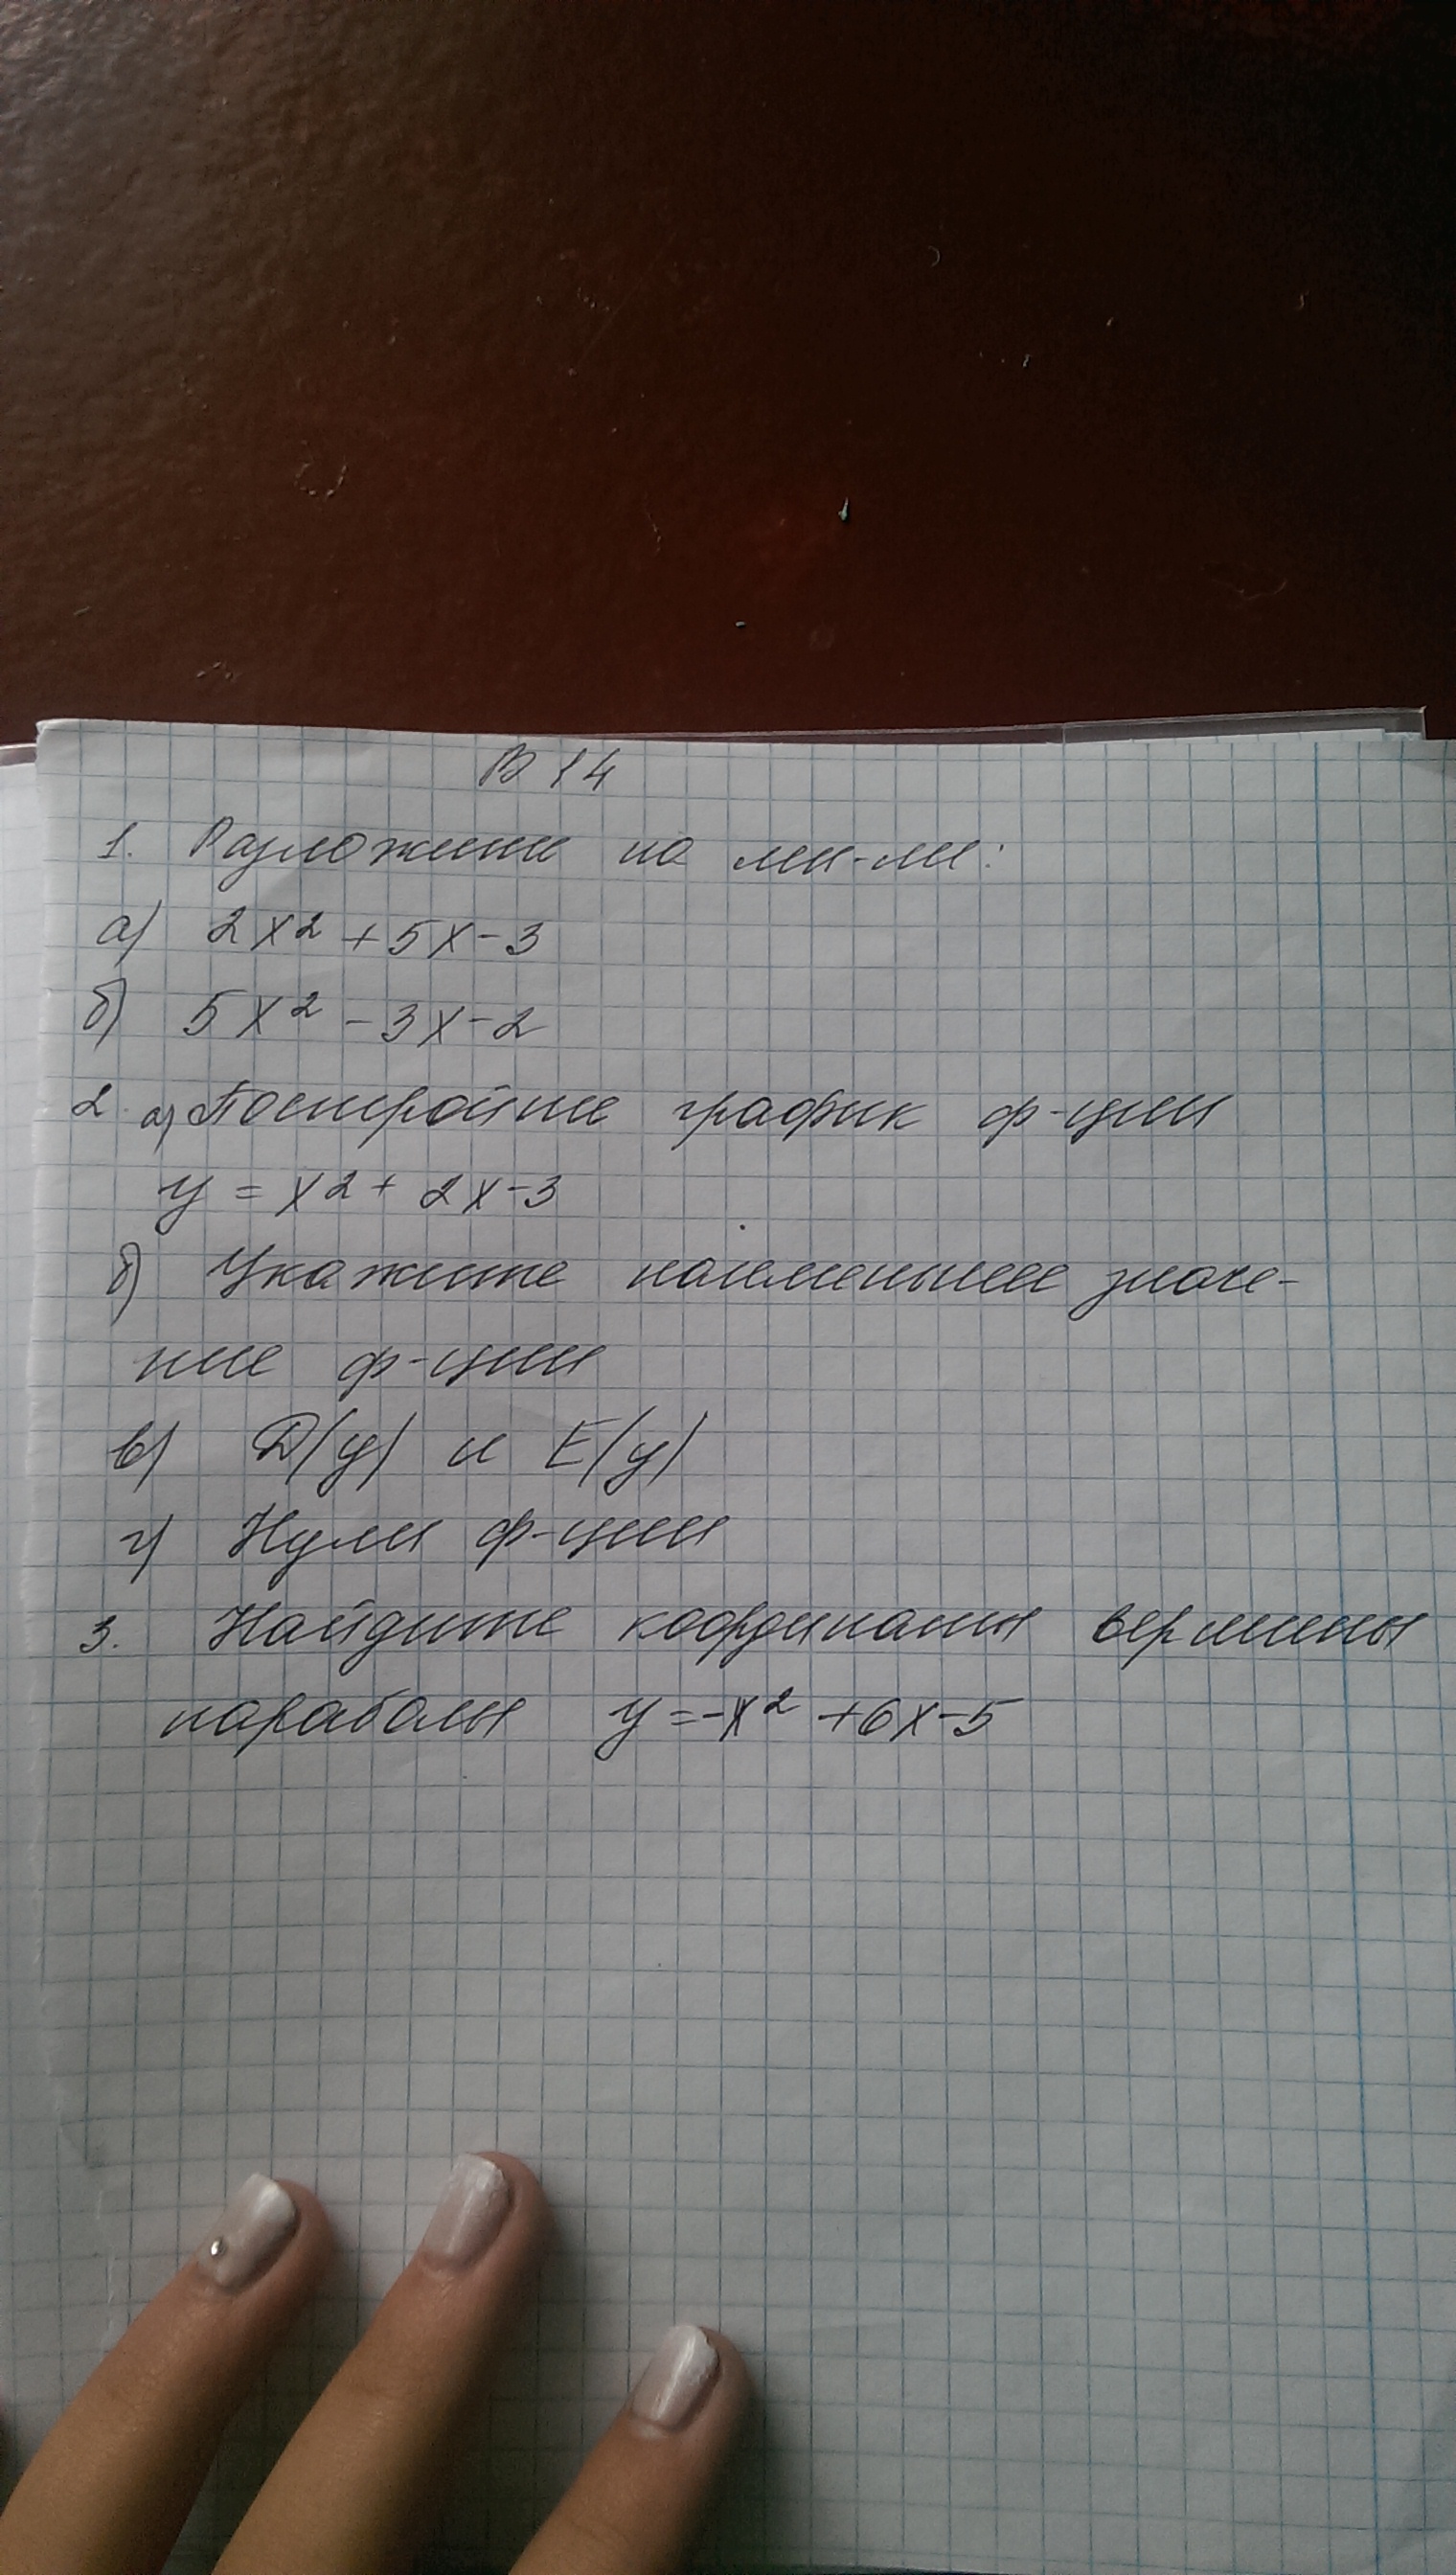 В 14
1. Разложите на мн-ли:
а) 2x² + 5x - 3
б) 5x² - 3x - 2
2. а) Постройте график ф-ции
y = x² + 2x - 3
б) Укажите наименьшее значе-
ние ф-ции
в) D(y) и E(y)
г) Нули ф-ции
3. Найдите координаты вершины
параболы y = -x² + 6x - 5